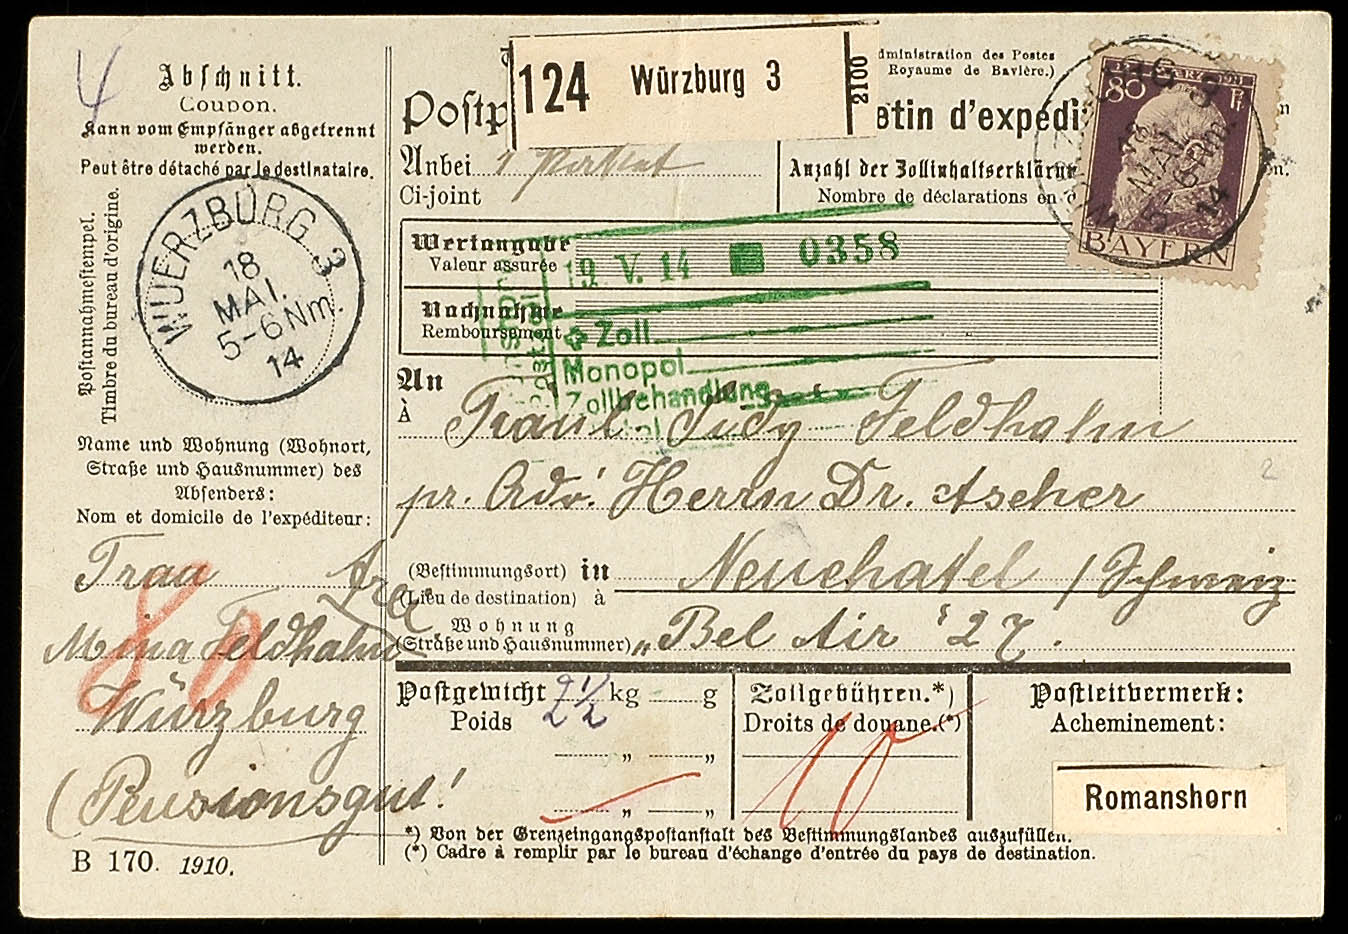 4
Abschnitt.
Coupon.
Kann vom Empfänger abgetrennt
werden.
Peut être détaché par le destinataire.
Postannahmestempel.
Timbre du bureau d'origine.
WUERZBURG 3
18
MAI.
5-6Nm.
14
Name und Wohnung (Wohnort,
Straße und Hausnummer) des
Absenders:
Nom et domicile de l'expéditeur:
Frau
Mina Feldhahn
Würzburg
(Pensionsgut!
80
B 170. 1910.
124 Würzburg 3 2100
dministration des Postes
Royaume de Bavière.)
Postp
etin d'expédi
Anbei 1
Ci-joint
Anzahl der Zollinhaltserkläru
Nombre de déclarations en d
80 Pf
BAYERN
18
MAI.
5-6Nm.
14
Wertangabe
Valeur assurée
19. V. 14 0358
Nachnahme
Remboursement
Zoll
Monopol
Zollbehandlung
An
À
Fräul. Feldhahn
pr. Adr. Herrn Dr. Ascher
(Bestimmungsort) in Neuchatel / Schweiz
(Lieu de destination) à
Wohnung
(Straße und Hausnummer) „Bel Air 27.
Postgewicht 2½ kg g
Poids
„ „
„ „
Zollgebühren.*)
Droits de douane.(*)
10
Postleitvermerk:
Acheminement:
Romanshorn
*) Von der Grenzeingangspostanstalt des Bestimmungslandes auszufüllen.
(*) Cadre à remplir par le bureau d'échange d'entrée du pays de destination.
2